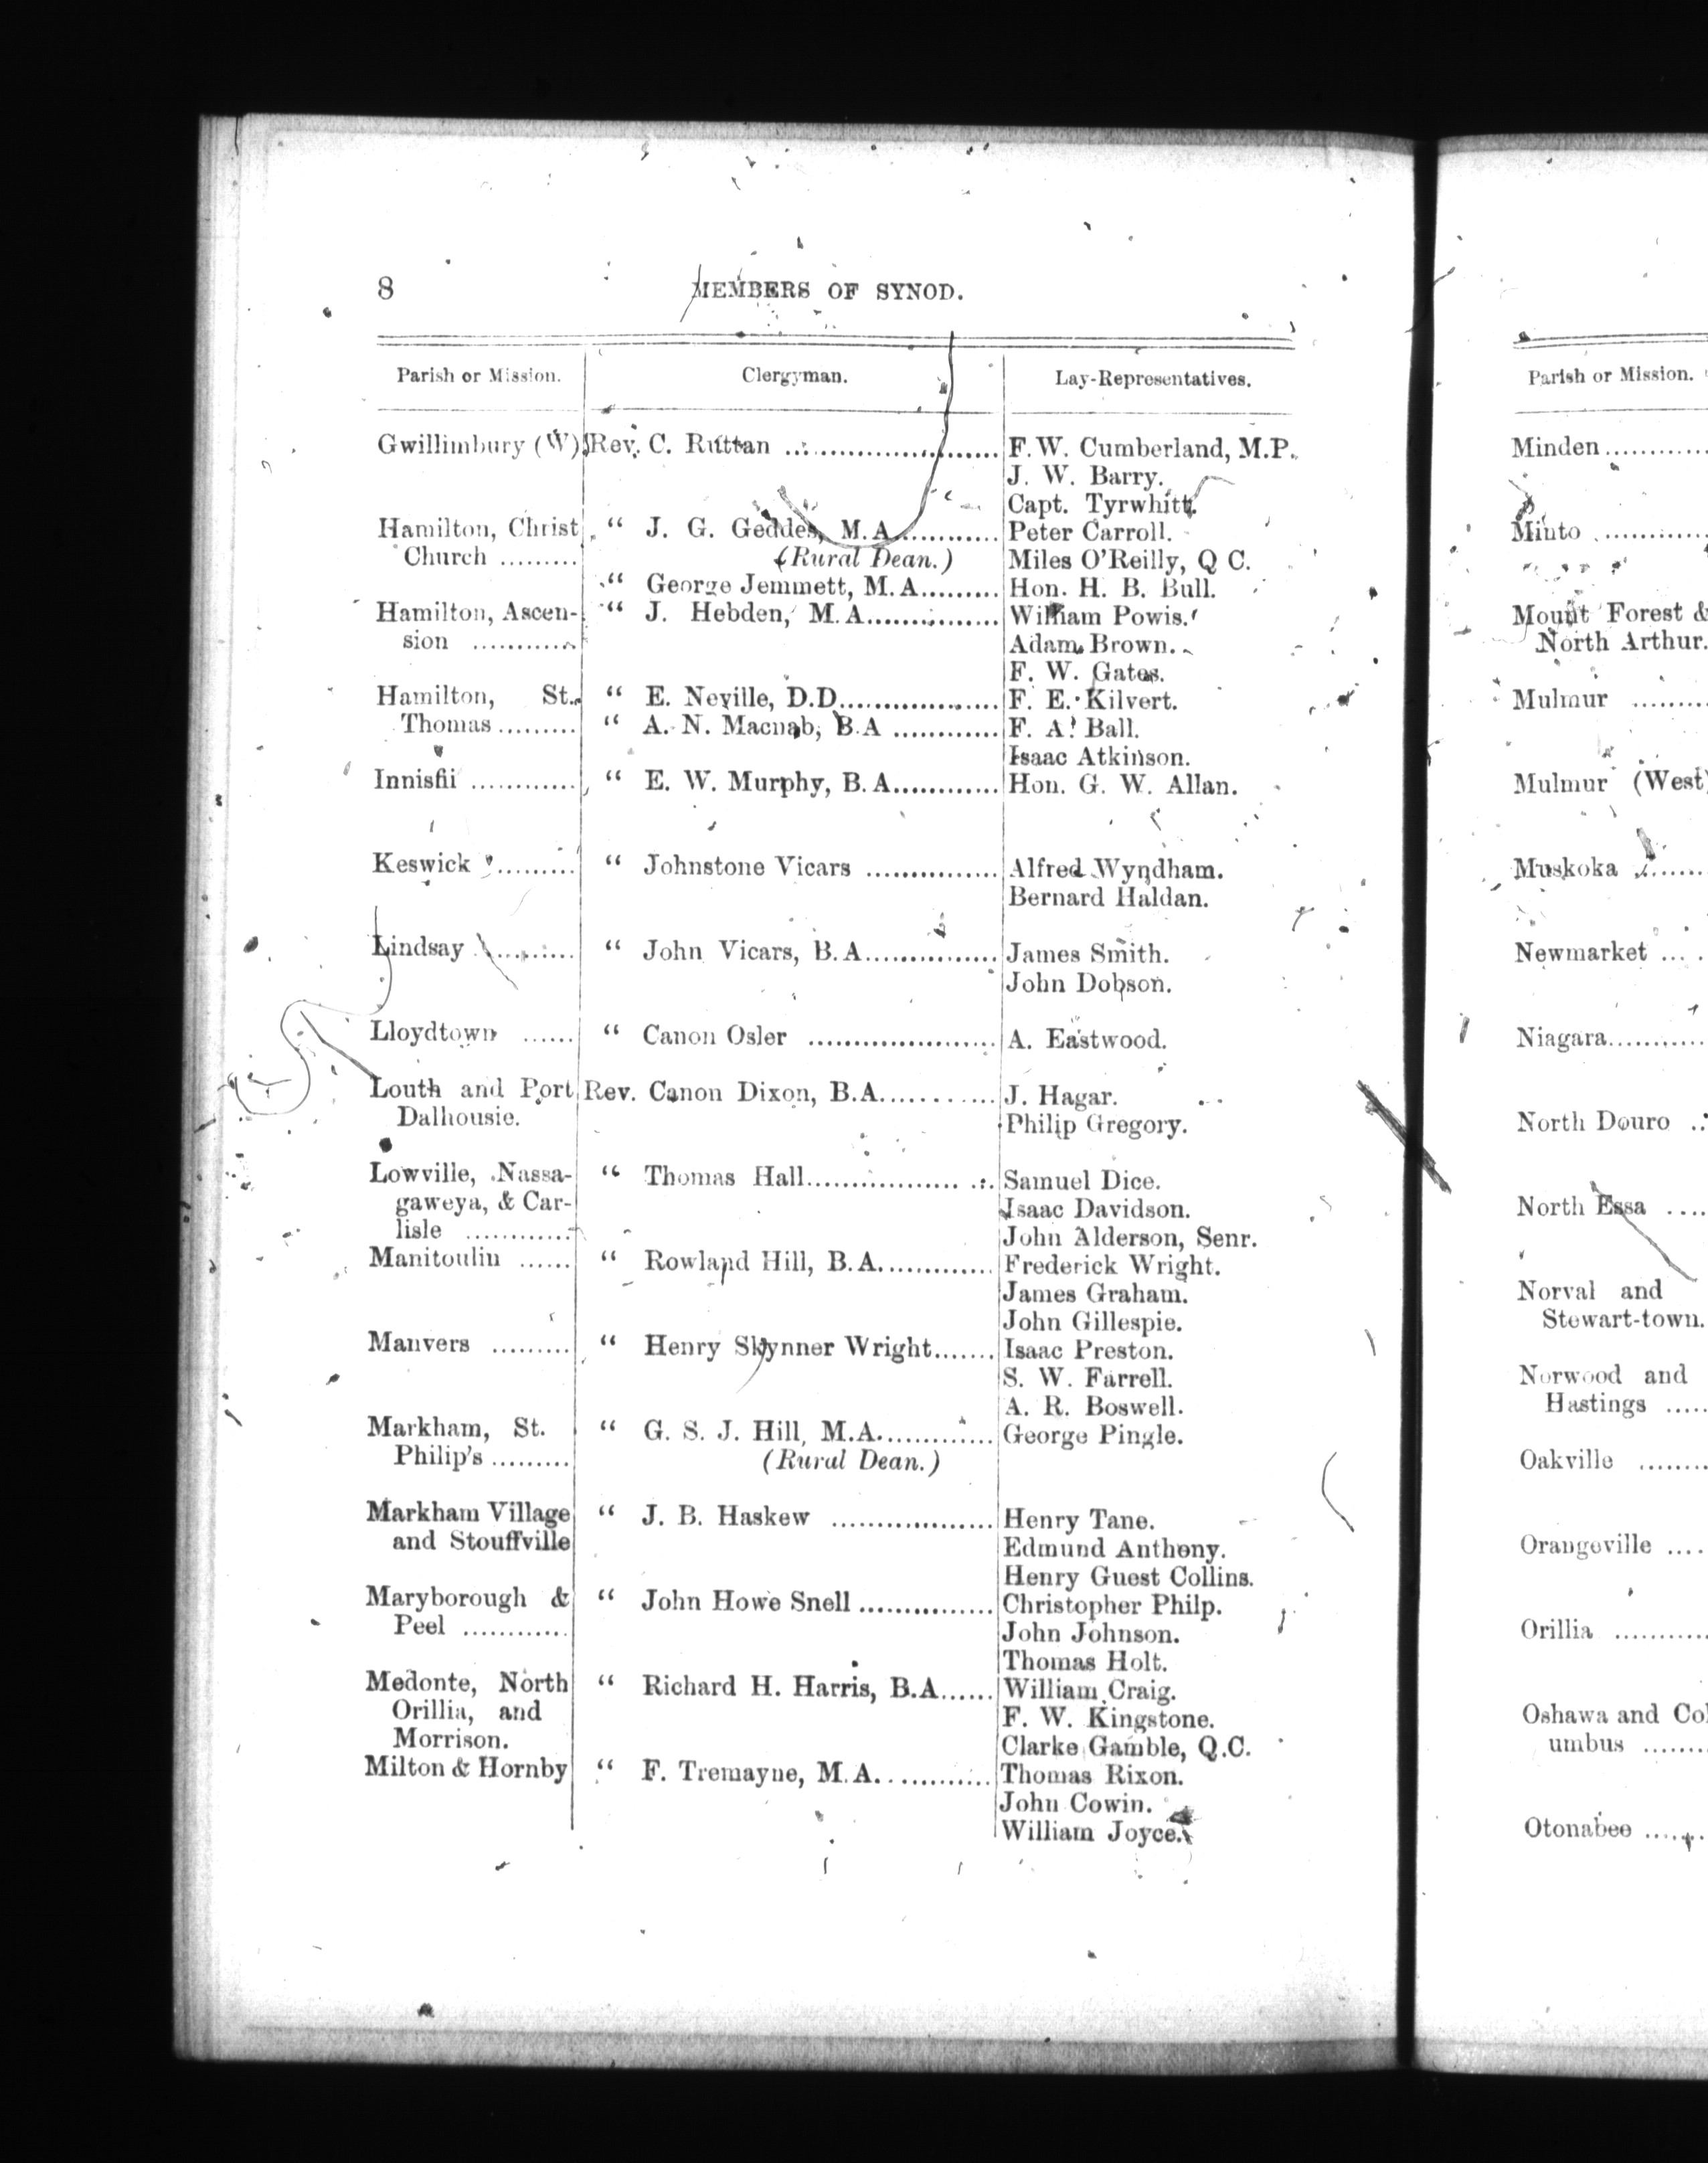 8 MEMBERS OF SYNOD.
Parish or Mission. Clergyman. Lay-Representatives.
Gwillimbury (W) Rev. C. Ruttan .................... F. W. Cumberland, M.P.
J. W. Barry.
Capt. Tyrwhitt.
Hamilton, Christ “ J. G. Geddes, M.A............ Peter Carroll.
Church ......... (Rural Dean.) Miles O'Reilly, Q C.
“ George Jemmett, M.A......... Hon. H. B. Bull.
Hamilton, Ascen- “ J. Hebden, M.A............... William Powis.
sion ............ Adam Brown.
F. W. Gates.
Hamilton, St. “ E. Neville, D.D.................. F. E. Kilvert.
Thomas ......... “ A. N. Macnab, B.A ............ F. A. Ball.
Isaac Atkinson.
Innisfil ............ “ E. W. Murphy, B.A............ Hon. G. W. Allan.
Keswick ......... “ Johnstone Vicars ............... Alfred Wyndham.
Bernard Haldan.
Lindsay ......... “ John Vicars, B.A............... James Smith.
John Dobson.
Lloydtown ...... “ Canon Osler ..................... A. Eastwood.
Louth and Port Rev. Canon Dixon, B.A............ J. Hagar.
Dalhousie. Philip Gregory.
Lowville, Nassa- “ Thomas Hall.................... Samuel Dice.
gaweya, & Car- Isaac Davidson.
lisle ............ John Alderson, Senr.
Manitoulin ...... “ Rowland Hill, B.A............. Frederick Wright.
James Graham.
John Gillespie.
Manvers ......... “ Henry Skynner Wright....... Isaac Preston.
S. W. Farrell.
A. R. Boswell.
Markham, St. “ G. S. J. Hill, M.A............. George Pingle.
Philip's ......... (Rural Dean.)
Markham Village “ J. B. Haskew .................. Henry Tane.
and Stouffville Edmund Anthony.
Henry Guest Collins.
Maryborough & “ John Howe Snell ............... Christopher Philp.
Peel ............ John Johnson.
Thomas Holt.
Medonte, North “ Richard H. Harris, B.A...... William Craig.
Orillia, and F. W. Kingstone.
Morrison. Clarke Gamble, Q.C.
Milton & Hornby “ F. Tremayne, M.A............. Thomas Rixon.
John Cowin.
William Joyce.
Parish or Mission.
Minden............
Minto ............
Mount Forest &
North Arthur.
Mulmur .........
Mulmur (West)
Muskoka .........
Newmarket ......
Niagara............
North Douro ...
North Essa ......
Norval and
Stewart-town.
Norwood and
Hastings ......
Oakville .........
Orangeville ......
Orillia ............
Oshawa and Col
umbus .........
Otonabee .........